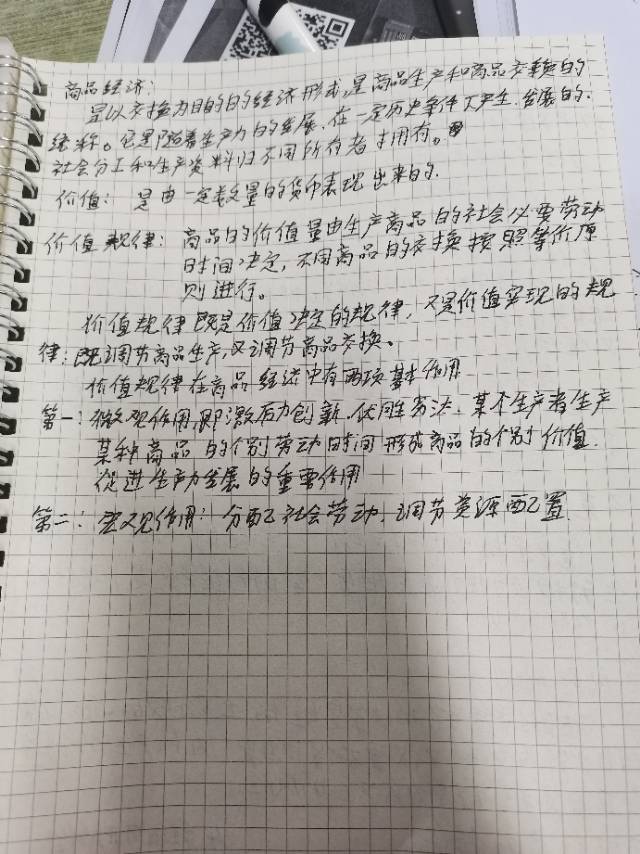 商品经济：
是以交换为目的的经济形式，是商品生产和商品交换的
统称。它是随着生产力的发展，在一定历史条件下产生、发展的。
社会分工和生产资料归不同所有者拥有。
价值：是由一定数量的货币表现出来的.
价值规律：商品的价值量由生产商品的社会必要劳动
时间决定，不同商品的交换按照等价原
则进行。
价值规律既是价值决定的规律，又是价值实现的规
律；既调节商品生产，又调节商品交换。
价值规律在商品经济中有两项基本作用
第一：微观作用，即激励创新、优胜劣汰，某个生产者生产
某种商品的个别劳动时间形成商品的个别价值.
促进生产力发展的重要作用
第二：宏观作用：分配社会劳动、调节资源配置